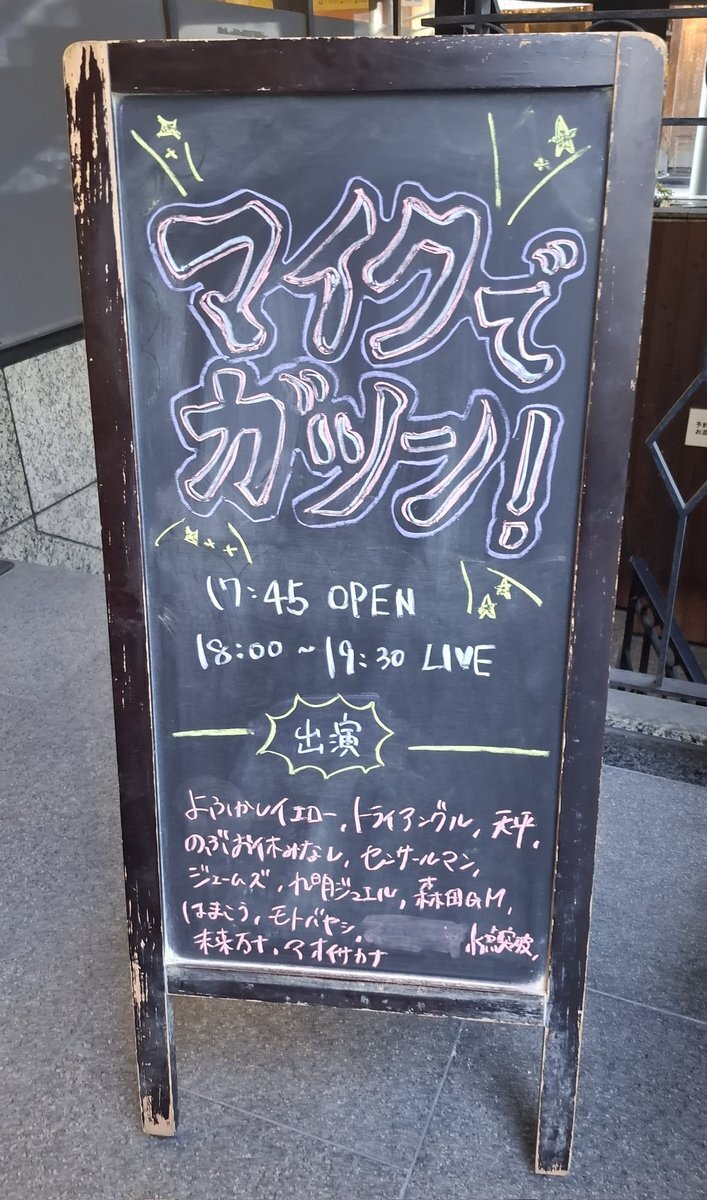 マイクで
ガツン!
17:45 OPEN
18:00~19:30 LIVE
出演
よふかしイエロー, トライアングル, 天秤,
のぶお休みなし, センサールマン,
ジェームズ, 九明ジュエル, 森田GM,
はまこう, モトバヤシ,
未来万才, マオイサカナ